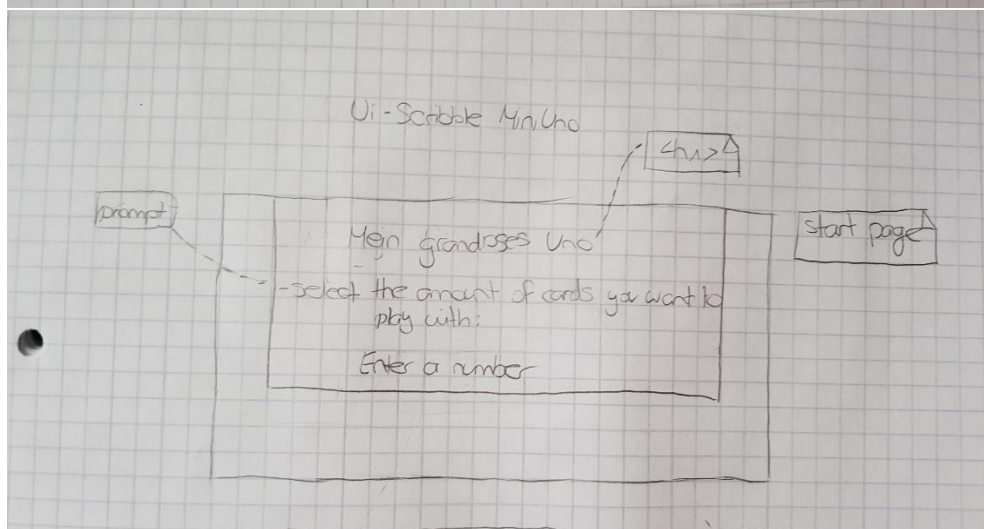 Ui-Scribble MiniUno
<h1>
prompt
start page
Mein grandioses Uno
-select the amount of cards you want to
play with:
Enter a number